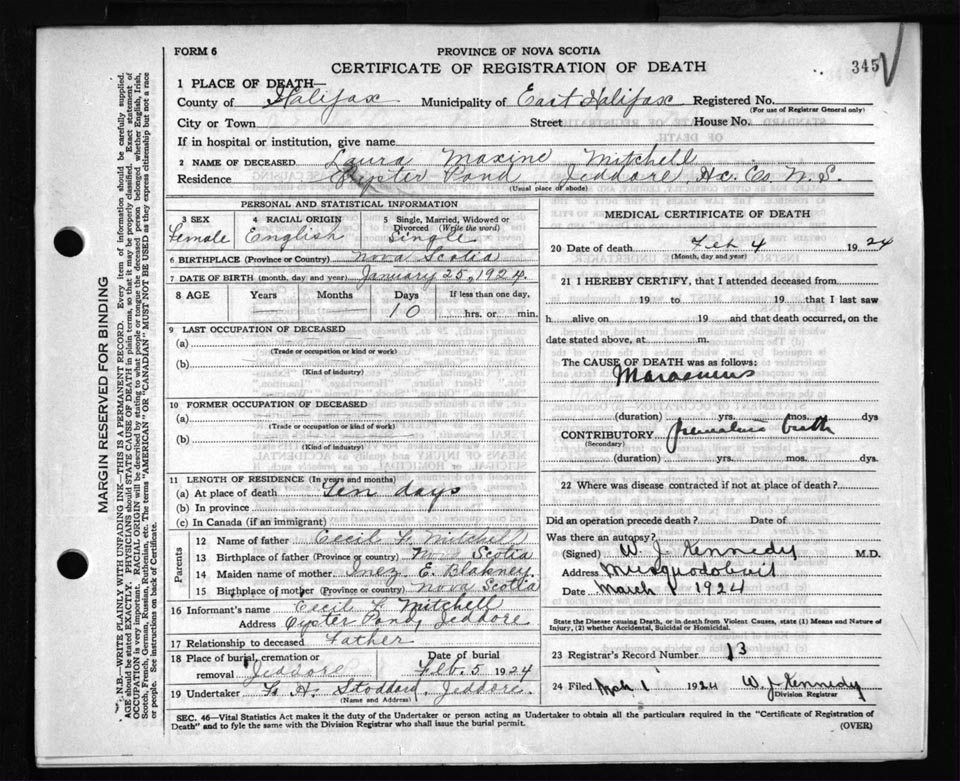 FORM 6
PROVINCE OF NOVA SCOTIA
CERTIFICATE OF REGISTRATION OF DEATH
345
1 PLACE OF DEATH—
County of Halifax Municipality of East Halifax Registered No.
(For use of Registrar General only)
City or Town Street House No.
If in hospital or institution, give name
2 NAME OF DECEASED Laura Maxine Mitchell
Residence Oyster Pond Jeddore Hx. Co. N. S
(Usual place of abode)
PERSONAL AND STATISTICAL INFORMATION
3 SEX 4 RACIAL ORIGIN 5 Single, Married, Widowed or Divorced (Write the word)
Female English Single
6 BIRTHPLACE (Province or Country) Nova Scotia
7 DATE OF BIRTH (month, day and year) January 25, 1924.
8 AGE Years Months Days If less than one day,
10 hrs. or min.
9 LAST OCCUPATION OF DECEASED
(a)
(Trade or occupation or kind or work)
(b)
(Kind of industry)
10 FORMER OCCUPATION OF DECEASED
(a)
(Trade or occupation or kind of work)
(b)
(Kind of industry)
11 LENGTH OF RESIDENCE (In years and months)
(a) At place of death Ten days
(b) In province
(c) In Canada (if an immigrant)
Parents
12 Name of father Cecil L. Mitchell
13 Birthplace of father (Province or country) Nova Scotia
14 Maiden name of mother. Inez E. Blakney
15 Birthplace of mother (Province or country) Nova Scotia
16 Informant's name Cecil L Mitchell
Address Oyster Pond, Jeddore
17 Relationship to deceased Father
18 Place of burial, cremation or removal Jeddore Date of burial Feb. 5 1924
19 Undertaker H. Stoddard, Jeddore.
(Name and Address)
MEDICAL CERTIFICATE OF DEATH
20 Date of death Feb 4 1924
(Month, day and year)
21 I HEREBY CERTIFY, that I attended deceased from
19 to 19 that I last saw
h alive on 19 and that death occurred, on the
date stated above, at m.
The CAUSE OF DEATH was as follows:
Marasmus
(duration) yrs. mos. dys
CONTRIBUTORY premature birth
(Secondary)
(duration) yrs. mos. dys
22 Where was disease contracted if not at place of death?
Did an operation precede death? Date of
Was there an autopsy?
(Signed) W. J. Kennedy M.D.
Address Musquodoboit
Date March 1 1924
State the Disease causing Death, or in death from Violent Causes, state (1) Means and Nature of Injury, (2) whether Accidental, Suicidal or Homicidal.
23 Registrar's Record Number 13
24 Filed Mch 1 1924 W. J. Kennedy
Division Registrar
SEC. 46—Vital Statistics Act makes it the duty of the Undertaker or person acting as Undertaker to obtain all the particulars required in the "Certificate of Registration of
Death" and to fyle the same with the Division Registrar who shall issue the burial permit. (OVER)
MARGIN RESERVED FOR BINDING
N.B.—WRITE PLAINLY WITH UNFADING INK—THIS IS A PERMANENT RECORD. Every item of information should be carefully supplied.
AGE should be stated EXACTLY. PHYSICIANS should STATE CAUSE OF DEATH in plain terms, so that it may be properly classified. Exact statement of
OCCUPATION is very important. RACIAL ORIGIN will be described by stating to what people or tongue the deceased person belonged whether English, Irish,
Scotch, French, German, Russian, Ruthenian, etc. The terms "AMERICAN" OR "CANADIAN" MUST NOT BE USED as they express citizenship but not a race
or people. See instructions on back of Certificate.